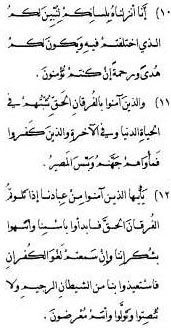 (١٠) إنّا أنزلناه بلسانكم لنبيّن لكم
الذي اختلفتم فيه ويكون لكم
هدىً ورحمةً إن كنتم تؤمنون.
(١١) والذين آمنوا بالفرقان الحقّ يثبّتهم في
الحياة الدنيا وفي الآخرة والذين كفروا
فمأواهم جهنّم وبئس المصير.
(١٢) يأيها الذين آمنوا من عبادنا إذا تلوتم
الفرقان الحقّ فابدأوا باسمنا وانتهوا
بشكرنا وإن سمعتم لغو الكفران
فاستعيذوا بنا من الشيطان الرجيم ولا
تنصتوا وتولّوا وأنتم معرضون.